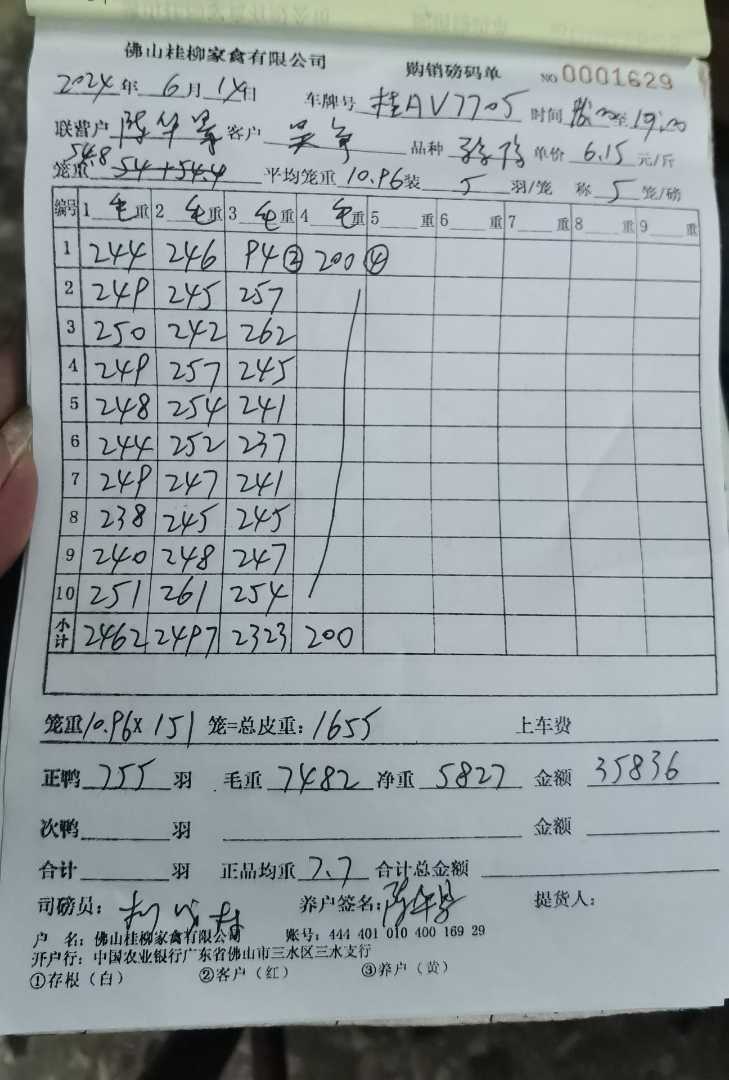 佛山桂柳家禽有限公司 购销磅码单 NO 0001629
2024年 6月 14日 车牌号 桂AV7705 时间 至 19:00
联营户 陈华 客户 吴 品种 单价 6.15 元/斤
54.8
笼重 54+54.4 平均笼重 10.96 装 5 羽/笼 称 5 笼/磅
编号 1 毛重 2 毛重 3 毛重 4 毛重 5 重 6 重 7 重 8 重 9 重
1 244 246 94② 200④
2 249 245 257
3 250 242 262
4 249 257 245
5 248 254 241
6 244 252 237
7 249 247 241
8 238 245 245
9 240 248 247
10 251 261 254
小计 2462 2497 2323 200
笼重 10.96 x 151 笼=总皮重: 1655 上车费
正鸭 755 羽 毛重 7482 净重 5827 金额 35836
次鸭 羽 金额
合计 羽 正品均重 7.7 合计总金额
司磅员: 养户签名: 陈华 提货人:
户 名: 佛山桂柳家禽有限公司 账号: 444 401 010 400 169 29
开户行: 中国农业银行广东省佛山市三水区三水支行
①存根(白) ②客户(红) ③养户(黄)